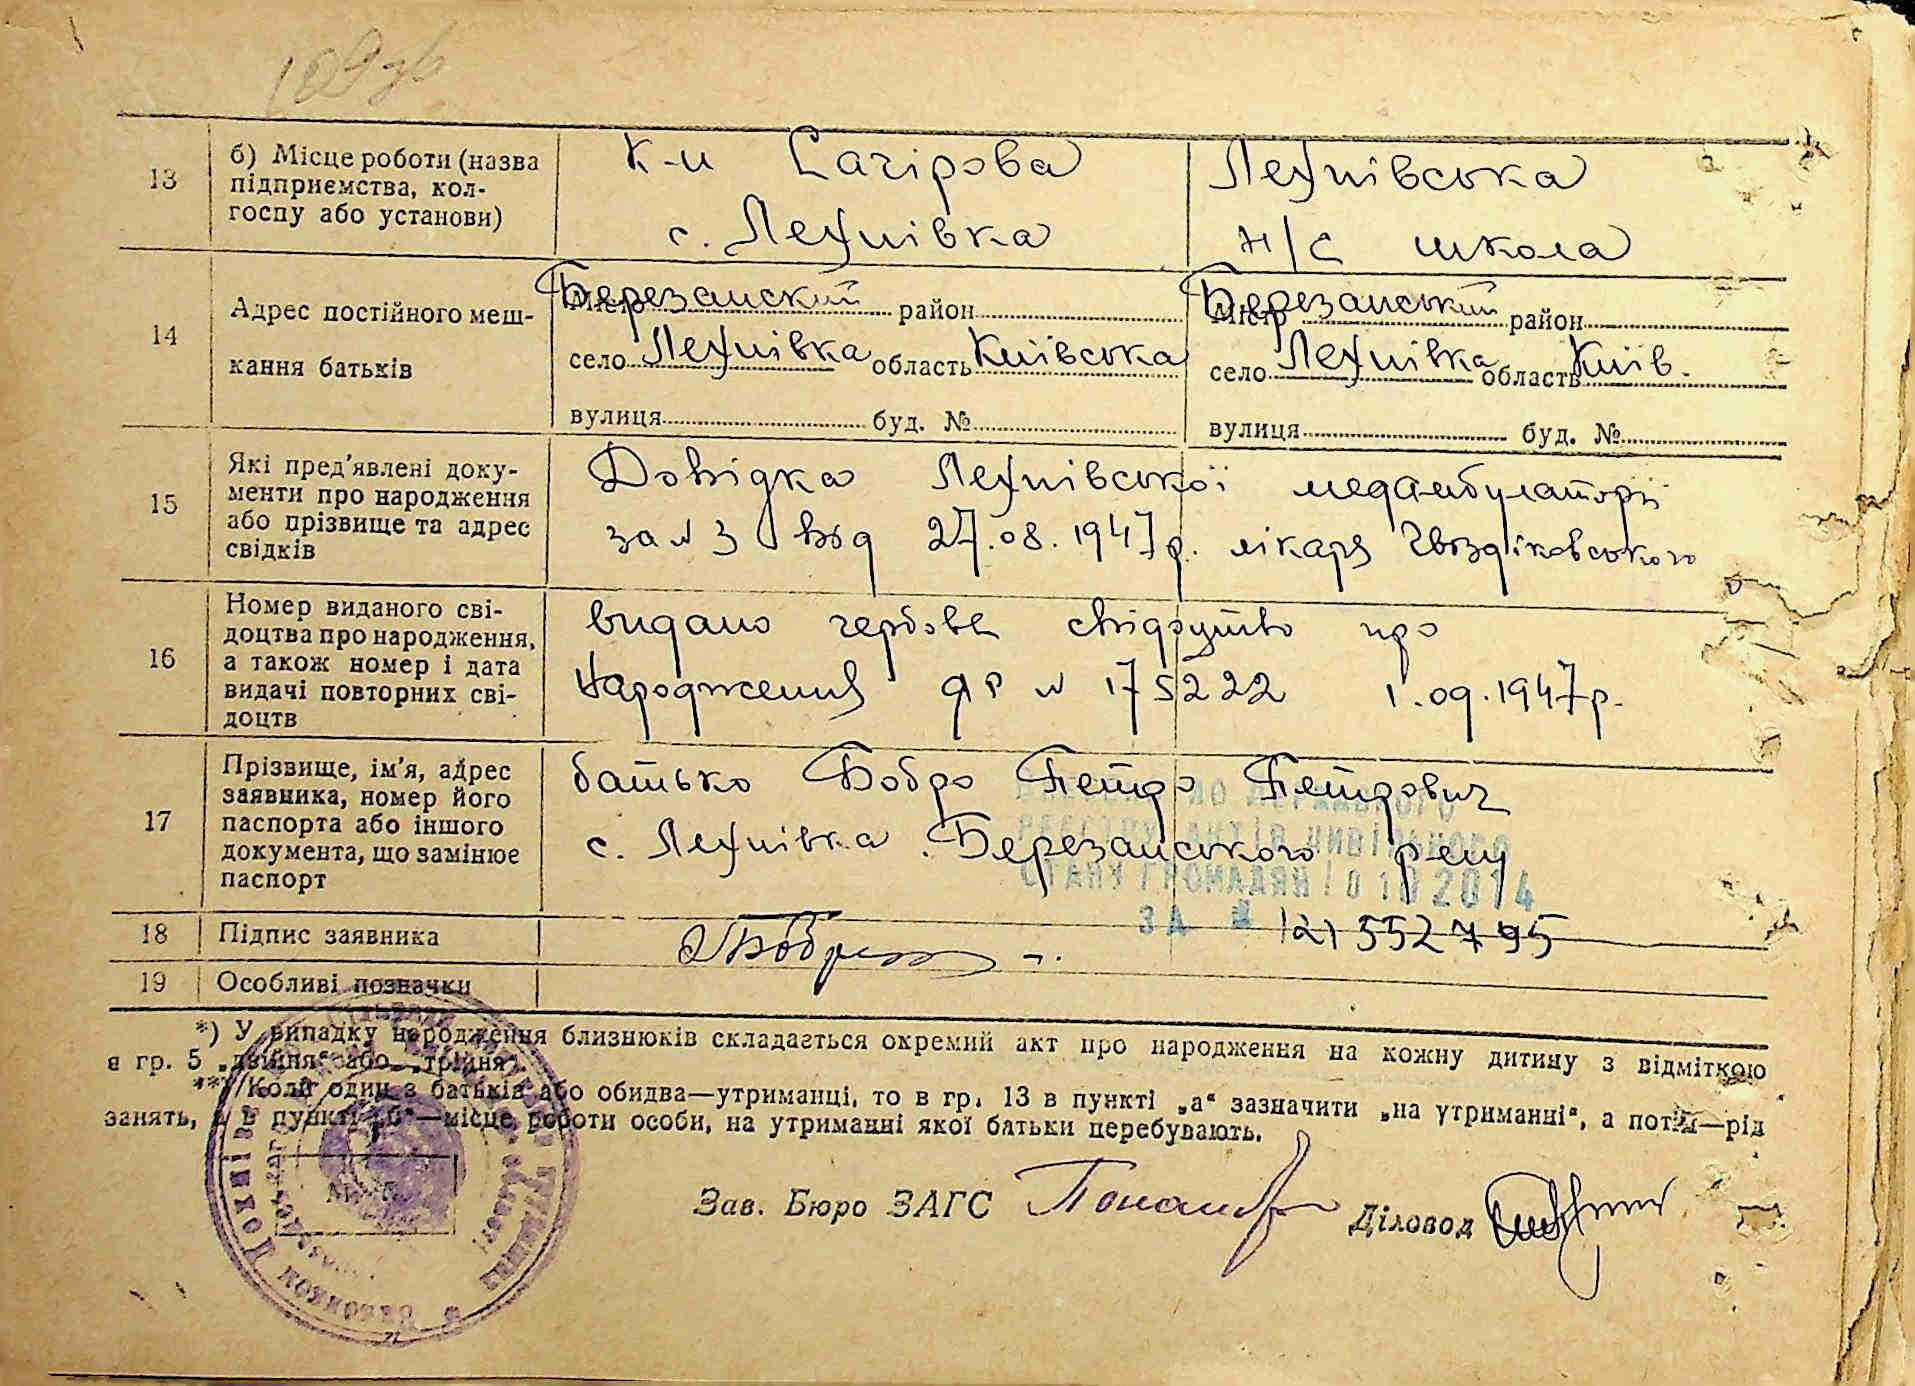 109 зв
13
б) Місце роботи (назва
підприємства, кол-
госпу або установи)
К-п
с. Лехнівка
Лехнівська
н/с школа
14
Адрес постійного меш-
кання батьків
Місто Березанский район
село Лехнівка область Київська
вулиця буд. №
Місто Березанський район
село Лехнівка область Київ.
вулиця буд. №
15
Які пред'явлені доку-
менти про народження
або прізвище та адрес
свідків
Довідка Лехнівської медамбулаторії
за № 3 від 27.08.1947р. лікаря Гвоздіковського
16
Номер виданого сві-
доцтва про народження,
а також номер і дата
видачі повторних сві-
доцтв
видано гербове свідоцтво про
народження № 175222 1.09.1947р.
17
Прізвище, ім'я, адрес
заявника, номер його
паспорта або іншого
документа, що замінює
паспорт
батько Бобро Петро Петрович
с. Лехнівка Березанського р-ну
ДО ДЕРЖАВНОГО
РЕЄСТРУ АКТІВ ЦИВІЛЬНОГО
СТАНУ ГРОМАДЯН 10 10 2014
ЗА № 121552795
18
Підпис заявника
19
Особливі позначки
*) У випадку народження близнюків складається окремий акт про народження на кожну дитину з відміткою
в гр. 5 „двійня“ або „трійня“.
**) Коли один з батьків або обидва—утриманці, то в гр. 13 в пункті „а“ зазначити „на утриманні“, а потім—рід
занять, а в пункті „б“—місце роботи особи, на утриманні якої батьки перебувають.
Зав. Бюро ЗАГС
Діловод